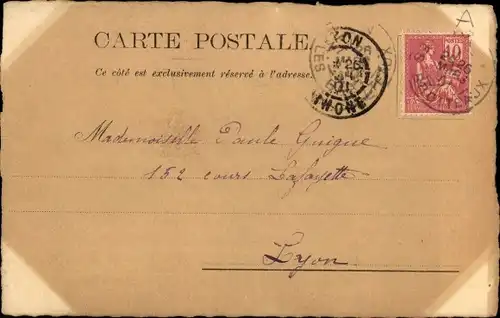 A
CARTE POSTALE
Ce côté est exclusivement réservé à l'adresse.
10
Mademoiselle Paule Guigue
152 cours Lafayette
Lyon
RHONE